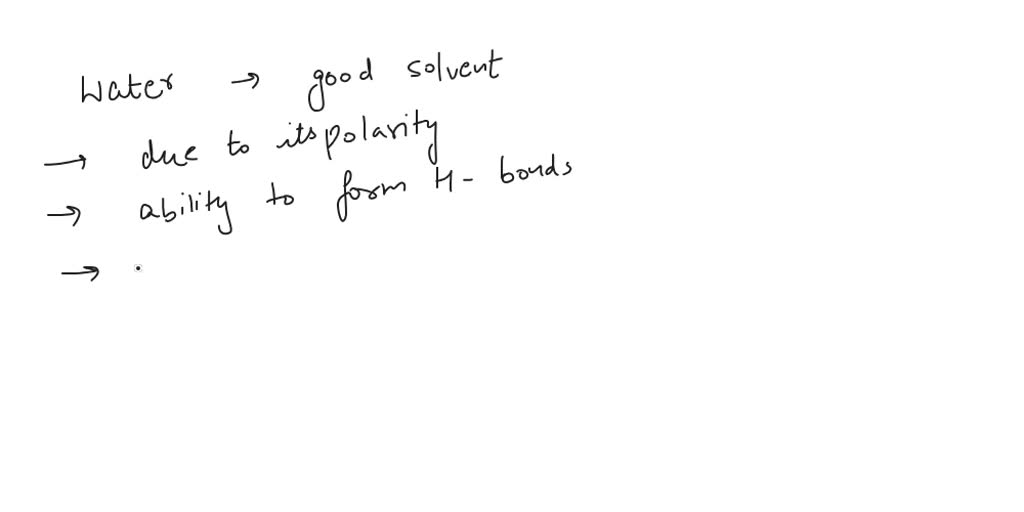 Water → good solvent
→ due to its polarity
→ ability to form H- bonds
→